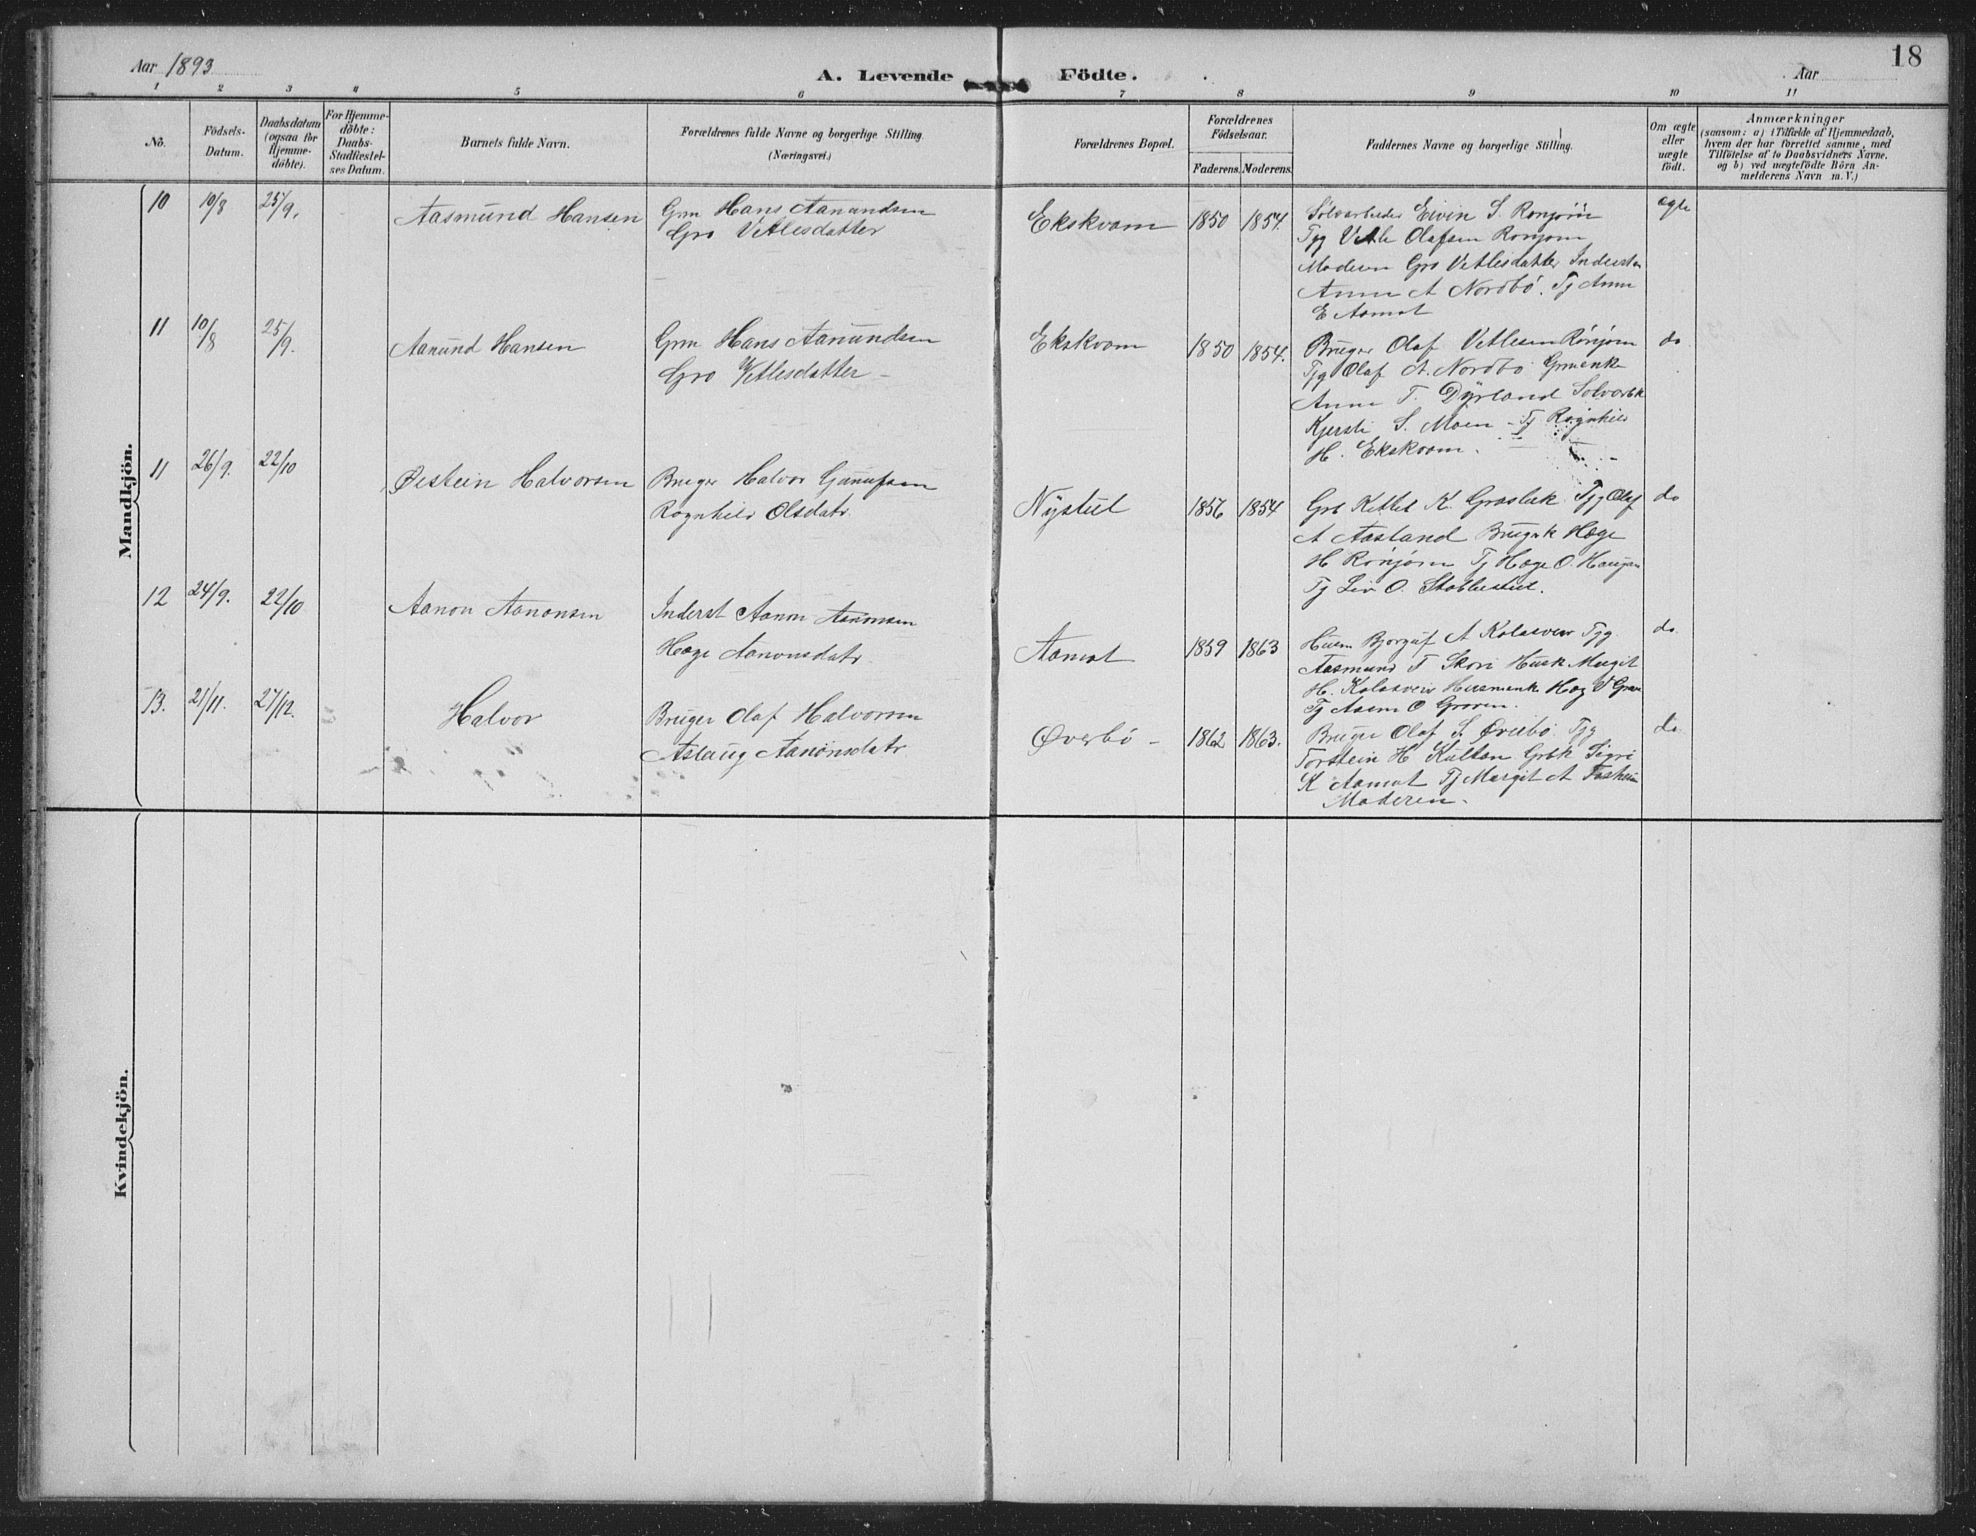 18
Aar 1893
A. Levende Födte.
Aar
1 2 3 4 5 6 7 8 9 10 11
No.
Födsels-
Datum.
Daabsdatum
(ogsaa for
Hjemme-
döbte).
For Hjemme-
döbte:
Daabs-
Stadfæstel-
ses Datum.
Barnets fulde Navn.
Forældrenes fulde Navne og borgerlige Stilling.
(Næringsvei.)
Forældrenes Bopæl.
Forældrenes
Födselsaar.
Faderens. Moderens.
Faddernes Navne og borgerlige Stilling.
Om ægte
eller
uægte
födt.
Anmærkninger
(saasom: a) i Tilfælde af Hjemmedaab,
hvem der har forrettet samme, med
Tilföielse af to Daabsvidners Navne,
og b) ved uægtefödte Börn An-
melderens Navn m. V.)
Mandkjön.
10 10/8 25/9. Aasmund Hansen
Grm Hans Aanundsen
Gro Vetlesdatter
Ekskvam 1850 1854.
Sölvarbeider Eivin S. Ronjom
Tyg Vetle Olafsen Ronjom
Moderen Gro Vetlesdatter Inderst
Anne A Nordbö. Tj Anne
E Aamot
ægte
11 10/8 25/9. Aanund Hansen
Grm Hans Aanundsen
Gro Vetlesdatter -
Ekskvam 1850 1854.
Bruger Olaf Vetlesen Rönjom
Tyg Olaf A. Nordbö Grmenke
Anne T. Dyrland Sölvarbk
Kjersti S. Moen - Tj Rognhild
H. Ekskvam.
do
11 26/9. 22/10 Øistein Halvorsen
Bruger Halvor Gunufsen
Rognhild Olsdatr.
Nystul 1856 1854
Grb Kittel K. Graslik Tyg Olaf
A Aasland Brugrk Hæge
H Rönjom Tj Hæge O. Haugan
Tj Liv O. Stabbestul.
do
12 24/9. 22/10 Aanon Aanonsen
Inderst Aanon Aanonsen
Hæge Aanonsdatr.
Aamot 1859 1863
Husm Bjorguf A Kolasvein Tyg
Aasmund T Skori Husk Margit
H. Kolasvein Husmenk Hæg V Graven
Tj Aasne O Graven.
do.
13. 21/11. 27/12. Halvor
Bruger Olaf Halvorsen
Aslaug Aanonsdatr
Øverbö - 1862 1863.
Bruger Olaf S. Överbö. Tyg
Torstein H Kultan Grbk Sigri
K Aamot Tj Margit A Aasheim
Moderen.
do
Kvindekjön.